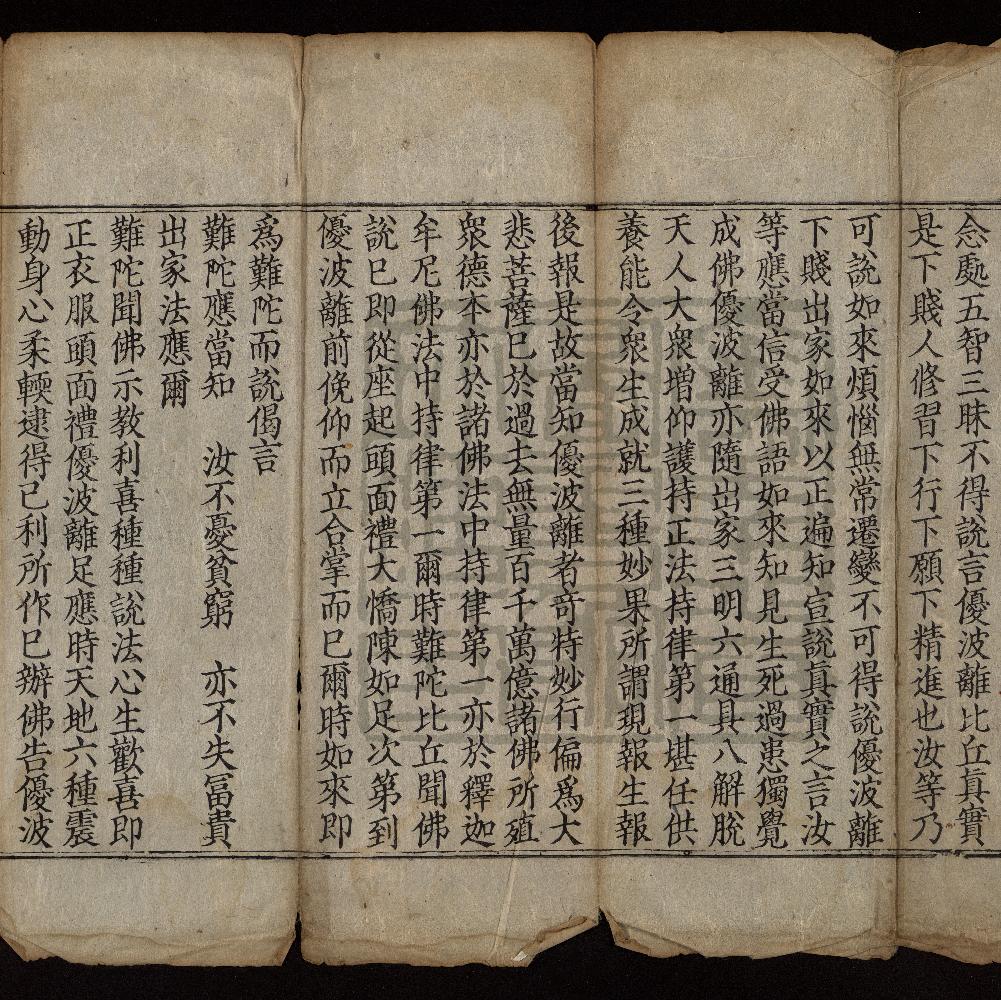 念處五智三昧不得說言優波離比丘眞實
是下賤人修習下行下願下精進也汝等乃
可說如來煩惱無常遷變不可得說優波離
下賤出家如來以正遍知宣說眞實之言汝
等應當信受佛語如來知見生死過患獨覺
成佛優波離亦隨出家三明六通具八解脫
天人大衆增仰護持正法持律第一堪任供
養能令衆生成就三種妙果所謂現報生報
後報是故當知優波離者竒特妙行偏爲大
悲菩薩已於過去無量百千萬億諸佛所殖
衆德本亦於諸佛法中持律第一亦於釋迦
牟尼佛法中持律第一爾時難陀比丘聞佛
說巳即從座起頭面禮大憍陳如足次第到
優波離前俛仰而立合掌而巳爾時如來即
爲難陀而說偈言
難陀應當知　汝不憂貧窮　亦不失冨貴
出家法應爾
難陀聞佛示教利喜種種說法心生歡喜即
正衣服頭面禮優波離足應時天地六種震
動身心柔輭逮得已利所作巳辦佛告優波